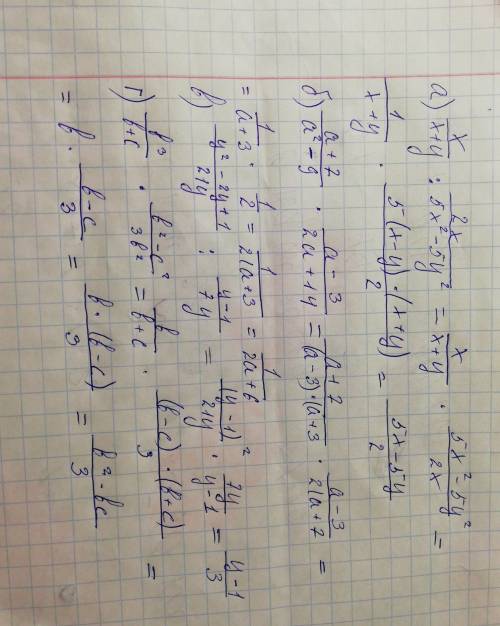 а) x/(x+y) : 2x/(5x²-5y²) = x/(x+y) · (5x²-5y²)/2x =
1/(x+y) · 5(x-y)·(x+y)/2 = (5x-5y)/2
б) (a+7)/(a²-9) · (a-3)/(2a+14) = (a+7)/((a-3)·(a+3) · (a-3)/(2(a+7 =
= 1/(a+3) · 1/2 = 1/(2(a+3) = 1/(2a+6)
в) (y²-2y+1)/21y : (y-1)/7y = (y-1)²/21y · 7y/(y-1) = (y-1)/3
г) b³/(b+c) · (b²-c²)/3b² = b/(b+c) · (b-c)·(b+c)/3 =
= b · (b-c)/3 = b·(b-c)/3 = (b²-bc)/3